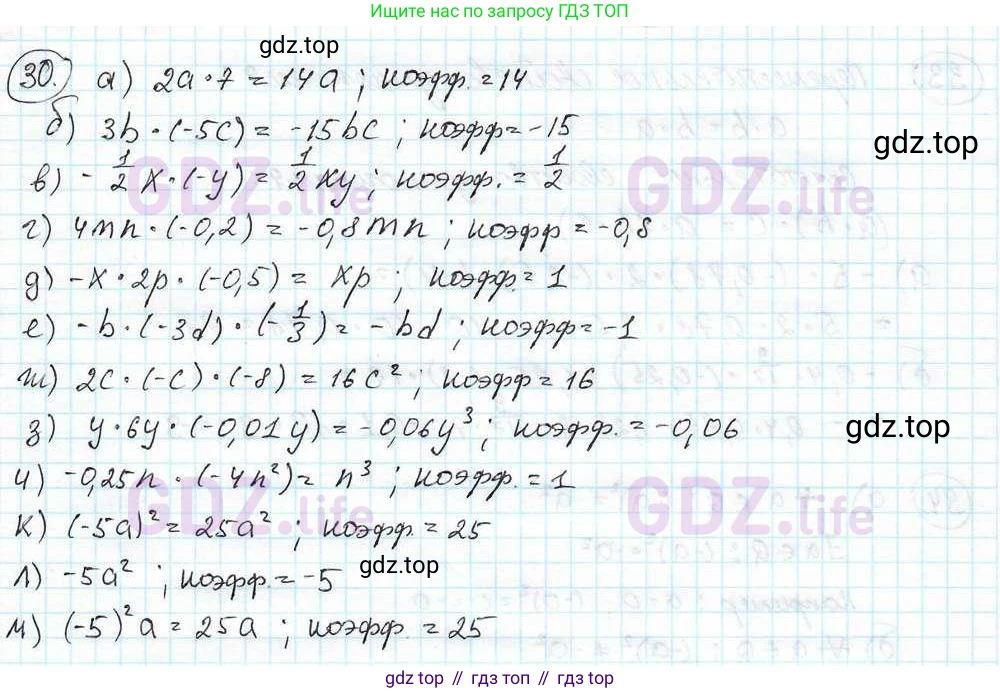 Ищите нас по запросу ГДЗ ТОП
gdz.top
30. а) 2a · 7 = 14a; коэфф. = 14
б) 3b · (-5c) = -15bc; коэфф = -15
gdz.top
в) -1/2 x · (-y) = 1/2 xy; коэфф. = 1/2
GDZ.life GDZ.life
г) 4mn · (-0,2) = -0,8mn; коэфф = -0,8
д) -x · 2p · (-0,5) = xp; коэфф. = 1
е) -b · (-3d) · (-1/3) = -bd; коэфф = -1
ж) 2c · (-c) · (-8) = 16c²; коэфф = 16
з) y · 6y · (-0,01y) = -0,06y³; коэфф. = -0,06
gdz.top
и) -0,25n · (-4n²) = n³; коэфф. = 1
GDZ.life GDZ.life
к) (-5a)² = 25a²; коэфф. = 25
л) -5a²; коэфф. = -5
gdz.top
м) (-5)²a = 25a; коэфф. = 25
gdz.top // гдз топ // gdz top